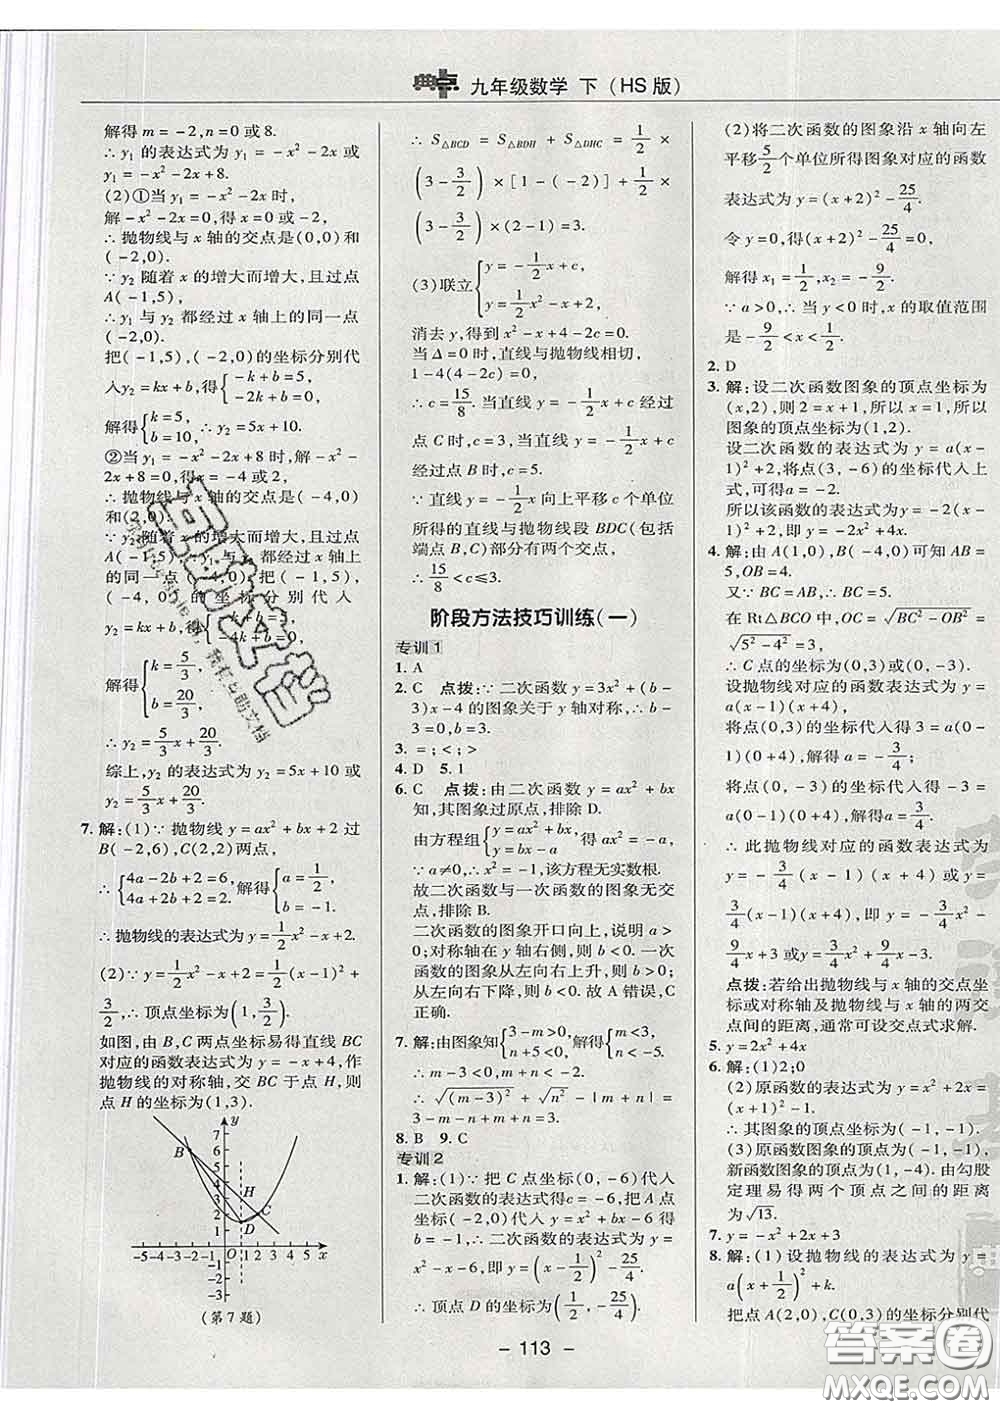 典点 九年级数学 下(HS版)
解得m=-2,n=0或8.
∴y₁的表达式为y₁=-x²-2x或
y₁=-x²-2x+8.
(2)①当y₁=-x²-2x时,
解-x²-2x=0,得x=0或-2,
∴抛物线与x轴的交点是(0,0)和
(-2,0).
∵y₂随着x的增大而增大,且过点
A(-1,5),
∴y₁与y₂都经过x轴上的同一点
(-2,0).
把(-1,5),(-2,0)的坐标分别代
入y₂=kx+b,得{-k+b=5, -2k+b=0,
解得{k=5, b=10, ∴y₂=5x+10.
②当y₁=-x²-2x+8时,解-x²-
2x+8=0,得x=-4或2,
∴抛物线与x轴的交点是(-4,0)和
(2,0).
∵y₂随着x的增大而增大,且过点
A(-1,5),∴y₁与y₂都经过x轴上
的同一点(-4,0).把(-1,5),
(-4,0)的坐标分别代入
y₂=kx+b,得{-k+b=5, -4k+b=0,
解得{k=5/3, b=20/3,
∴y₂=5/3x+20/3.
综上,y₂的表达式为y₂=5x+10或
y₂=5/3x+20/3.
7.解:(1)∵抛物线y=ax²+bx+2过
B(-2,6),C(2,2)两点,
∴{4a-2b+2=6, 4a+2b+2=2, 解得{a=1/2, b=-1.
∴抛物线的表达式为y=1/2x²-x+2.
(2)∵y=1/2x²-x+2=1/2(x-1)²+
3/2,∴顶点坐标为(1,3/2).
如图,由B,C两点坐标易得直线BC
对应的函数表达式为y=-x+4,作
抛物线的对称轴,交BC于点H,则
点H的坐标为(1,3).
y
7
6
5
4
3
2
1
B
H
C
D
-5-4-3-2-1 O 1 2 3 4 5 x
-1
-2
-3
(第7题)
∴S△BCD=S△BDH+S△DHC=1/2×
(3-3/2)×[1-(-2)]+1/2×
(3-3/2)×(2-1)=3.
(3)联立{y=-1/2x+c, y=1/2x²-x+2,
消去y,得到x²-x+4-2c=0.
当Δ=0时,直线与抛物线相切,
1-4(4-2c)=0,
∴c=15/8.当直线y=-1/2x+c经过
点C时,c=3,当直线y=-1/2x+c
经过点B时,c=5.
∵直线y=-1/2x向上平移c个单位
所得的直线与抛物线段BDC(包括
端点B,C)部分有两个交点,
∴15/8<c≤3.
阶段方法技巧训练(一)
专训1
1. A
2. C 点拨:∵二次函数y=3x²+(b-
3)x-4的图象关于y轴对称,∴b-
3=0,b=3.
3. =;<;>
4. D 5. 1
6. C 点拨:由二次函数y=ax²+bx可
知,其图象过原点,排除D.
由方程组{y=ax²+bx, y=bx-a 得ax²=-a,
∵a≠0,∴x²=-1,该方程无实数根.
故二次函数与一次函数的图象无交
点,排除B.
二次函数的图象开口向上,说明a>
0;对称轴在y轴右侧,则b<0.一次
函数的图象从左向右上升,则b>0;
与二次函数矛盾.故A错误,C
正确.
7.解:由图象知{3-m>0, n+5<0, ∴{m<3, n<-5.
∴m-3<0,n<0.
∴√(m-3)²+√n²-|m+n|=
3-m-n+m+n=3.
8. B 9. C
专训2
1.解:(1)∵把C点坐标(0,-6)代人
二次函数的表达式得c=-6,把A点
坐标(-2,0)代入y=x²+bx-6得
b=-1,∴二次函数的表达式为y=
x²-x-6,即y=(x-1/2)²-25/4.
∴顶点D的坐标为(1/2,-25/4).
(2)将二次函数的图象沿x轴向左
平移5/2个单位所得图象对应的函数
表达式为y=(x+2)²-25/4.
令y=0,得(x+2)²-25/4=0,
解得x₁=1/2,x₂=-9/2.
∵a>0,∴当y<0时,x的取值范围
是-9/2<x<1/2.
2. D
3.解:设二次函数图象的顶点坐标为
(x,2),则2=x+1,所以x=1,所以
图象的顶点坐标为(1,2).
设二次函数的表达式为y=a(x-
1)²+2,将点(3,-6)的坐标代入上
式,可得a=-2.
所以该函数的表达式为y=-2(x-
1)²+2,即y=-2x²+4x.
4.解:由A(1,0),B(-4,0)可知AB=
5,OB=4.
又∵BC=AB,∴BC=5.
在Rt△BCO中,OC=√BC²-OB²=
√5²-4²=3,
∴C点的坐标为(0,3)或(0,-3).
设抛物线对应的函数表达式为y=
a(x-1)(x+4),
将点(0,3)的坐标代入得3=a(0-
1)(0+4),解得a=-3/4;
将点(0,-3)的坐标代入得-3=
a(0-1)(0+4),解得a=3/4.
∴此抛物线对应的函数表达式为
y=-3/4(x-1)(x+4)或y=
3/4(x-1)(x+4),即y=-3/4x²-
9/4x+3或y=3/4x²+9/4x-3.
点拨:若给出抛物线与x轴的交点坐
标或对称轴及抛物线与x轴的两交
点间的距离,通常可设交点式求解.
5. y=2x²+4x
6.解:(1)2;0
(2)原函数的表达式为y=x²+2x=
(x+1)²-1.
∴其图象的顶点坐标为(-1,-1).
(3)原函数图象的顶点为(-1,-1),
新函数图象的顶点为(1,-4).由勾股
定理易得两个顶点之间的距离
为√13.
7. y=-x²+2x+3
8.解:(1)设抛物线的表达式为y=
a(x+1/2)²+k.
把点A(2,0),C(0,3)的坐标分别代
- 113 -
答案圈
MXQE.COM